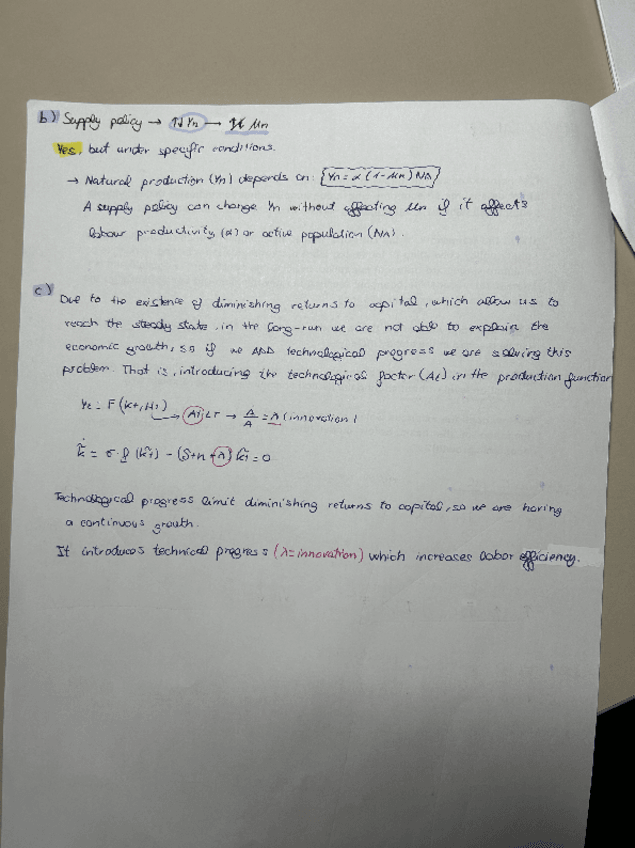 b) Supply policy → ↑↓ Yn → Un
Yes, but under specific conditions.
→ Natural production (Yn) depends on: Yn = α (1 - Un) NA
A supply policy can change Yn without affecting Un if it affects
labour productivity (α) or active population (NA).
c) Due to the existence of diminishing returns to capital, which allow us to
reach the steady state, in the long-run we are not able to explain the
economic growth, so if we ADD technological progress we are solving this
problem. That is, introducing the technological factor (At) in the production function
Yt = F(Kt, Ht) → At Lt → Ȧ/A = λ (innovation)
Technological progress limit diminishing returns to capital, so we are having
a continuous growth.
It introduces technical progress (λ = innovation) which increases labor efficiency.